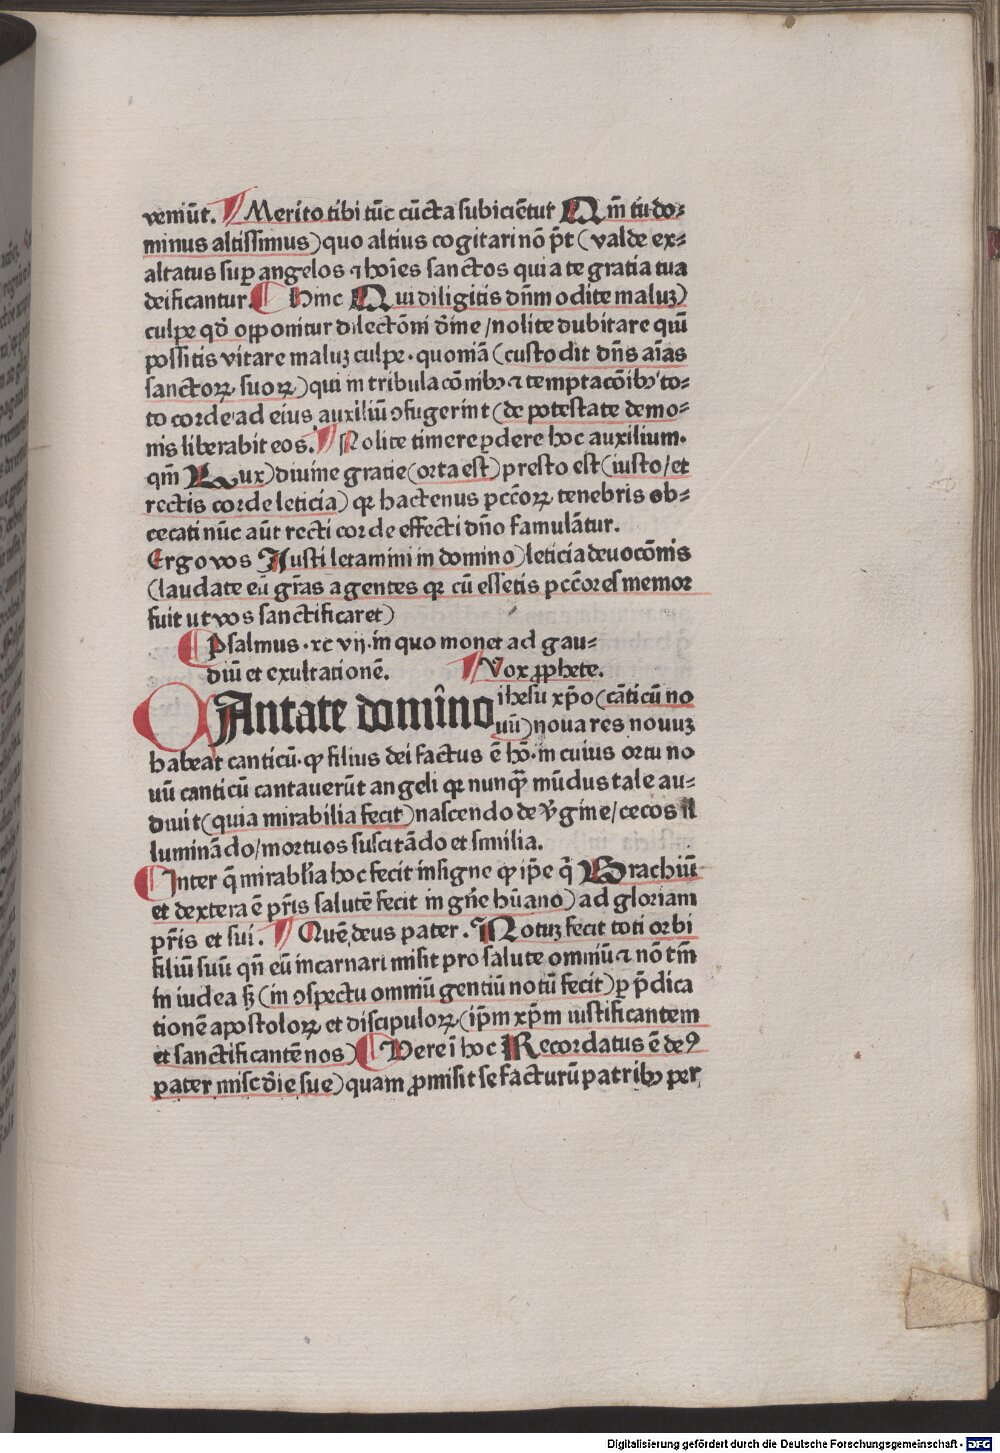 veniūt. ¶ Merito tibi tūc cūcta subiciētur Qm̄ tu do⸗
minus altissimus) quo altius cogitari nō pt̄ (valde ex⸗
altatus suꝑ angelos ⁊ hoīes sanctos qui a te gratia tua
deificantur. ¶ Hinc Qui diligitis dn̄m odite maluꝫ)
culpe qd̓ opponitur dilectōni dīne / nolite dubitare quī
possitis vitare maluꝫ culpe · quoniā (custodit dn̄s aīas
sanctoꝝ suoꝝ) qui in tribulacōnibꝰ ⁊ temptacōibꝰ to⸗
to corde ad eius auxiliū ɔfugerint (de potestate demo⸗
nis liberabit eos. ¶ Nolite timere ꝑdere hoc auxilium.
qm̄ Lux) diuine gratie (orta est) presto est (iusto / et
rectis corde leticia) qꝛ hactenus pccōꝝ tenebris ob⸗
cecati nūc aūt recti corde effecti dn̄o famulātur.
Ergo vos Iusti letamini in domino) leticia deuocōnis
(laudate eū grās agentes qꝛ cū essetis pccōres memor
fuit ut vos sanctificaret)
¶ Psalmus · xcvij · in quo monet ad gau⸗
diū et exultationē. ¶ Vox ꝓphete.
CAntate domino ihesu xp̄o (cāticū no
uū) noua res nouuꝫ
habeat canticū · ꝙ filius dei factus ē hō · in cuius ortu no
uū canticū cantauerūt angeli qꝛ nunqͣꝫ mūdus tale au⸗
diuit (quia mirabilia fecit) nascendo de v̓gine / cecos il
luminādo / mortuos suscitādo et similia.
¶ Inter q̄ mirabl̓ia hoc fecit insigne ꝙ ip̄e q̓ Brachiū
et dextera ē pr̄is salutē fecit in gn̄e hūano) ad gloriam
pr̄is et sui. ¶ Quē deus pater. Notuꝫ fecit toti orbi
filiū suū qn̄ eū incarnari misit pro salute omniū ⁊ nō tm̄
in iudea sꝫ (in ɔspectu omniū gentiū notū fecit) ꝑ p̄dica
tionē apostoloꝝ et discipuloꝝ (ip̄m xp̄m iustificantem
et sanctificantē nos) ¶ Vere ī hoc Recordatus ē deꝰ
pater misc̄d̓ie sue) quam ꝓmisit se facturū patribꝰ per
Digitalisierung gefördert durch die Deutsche Forschungsgemeinschaft - DFG